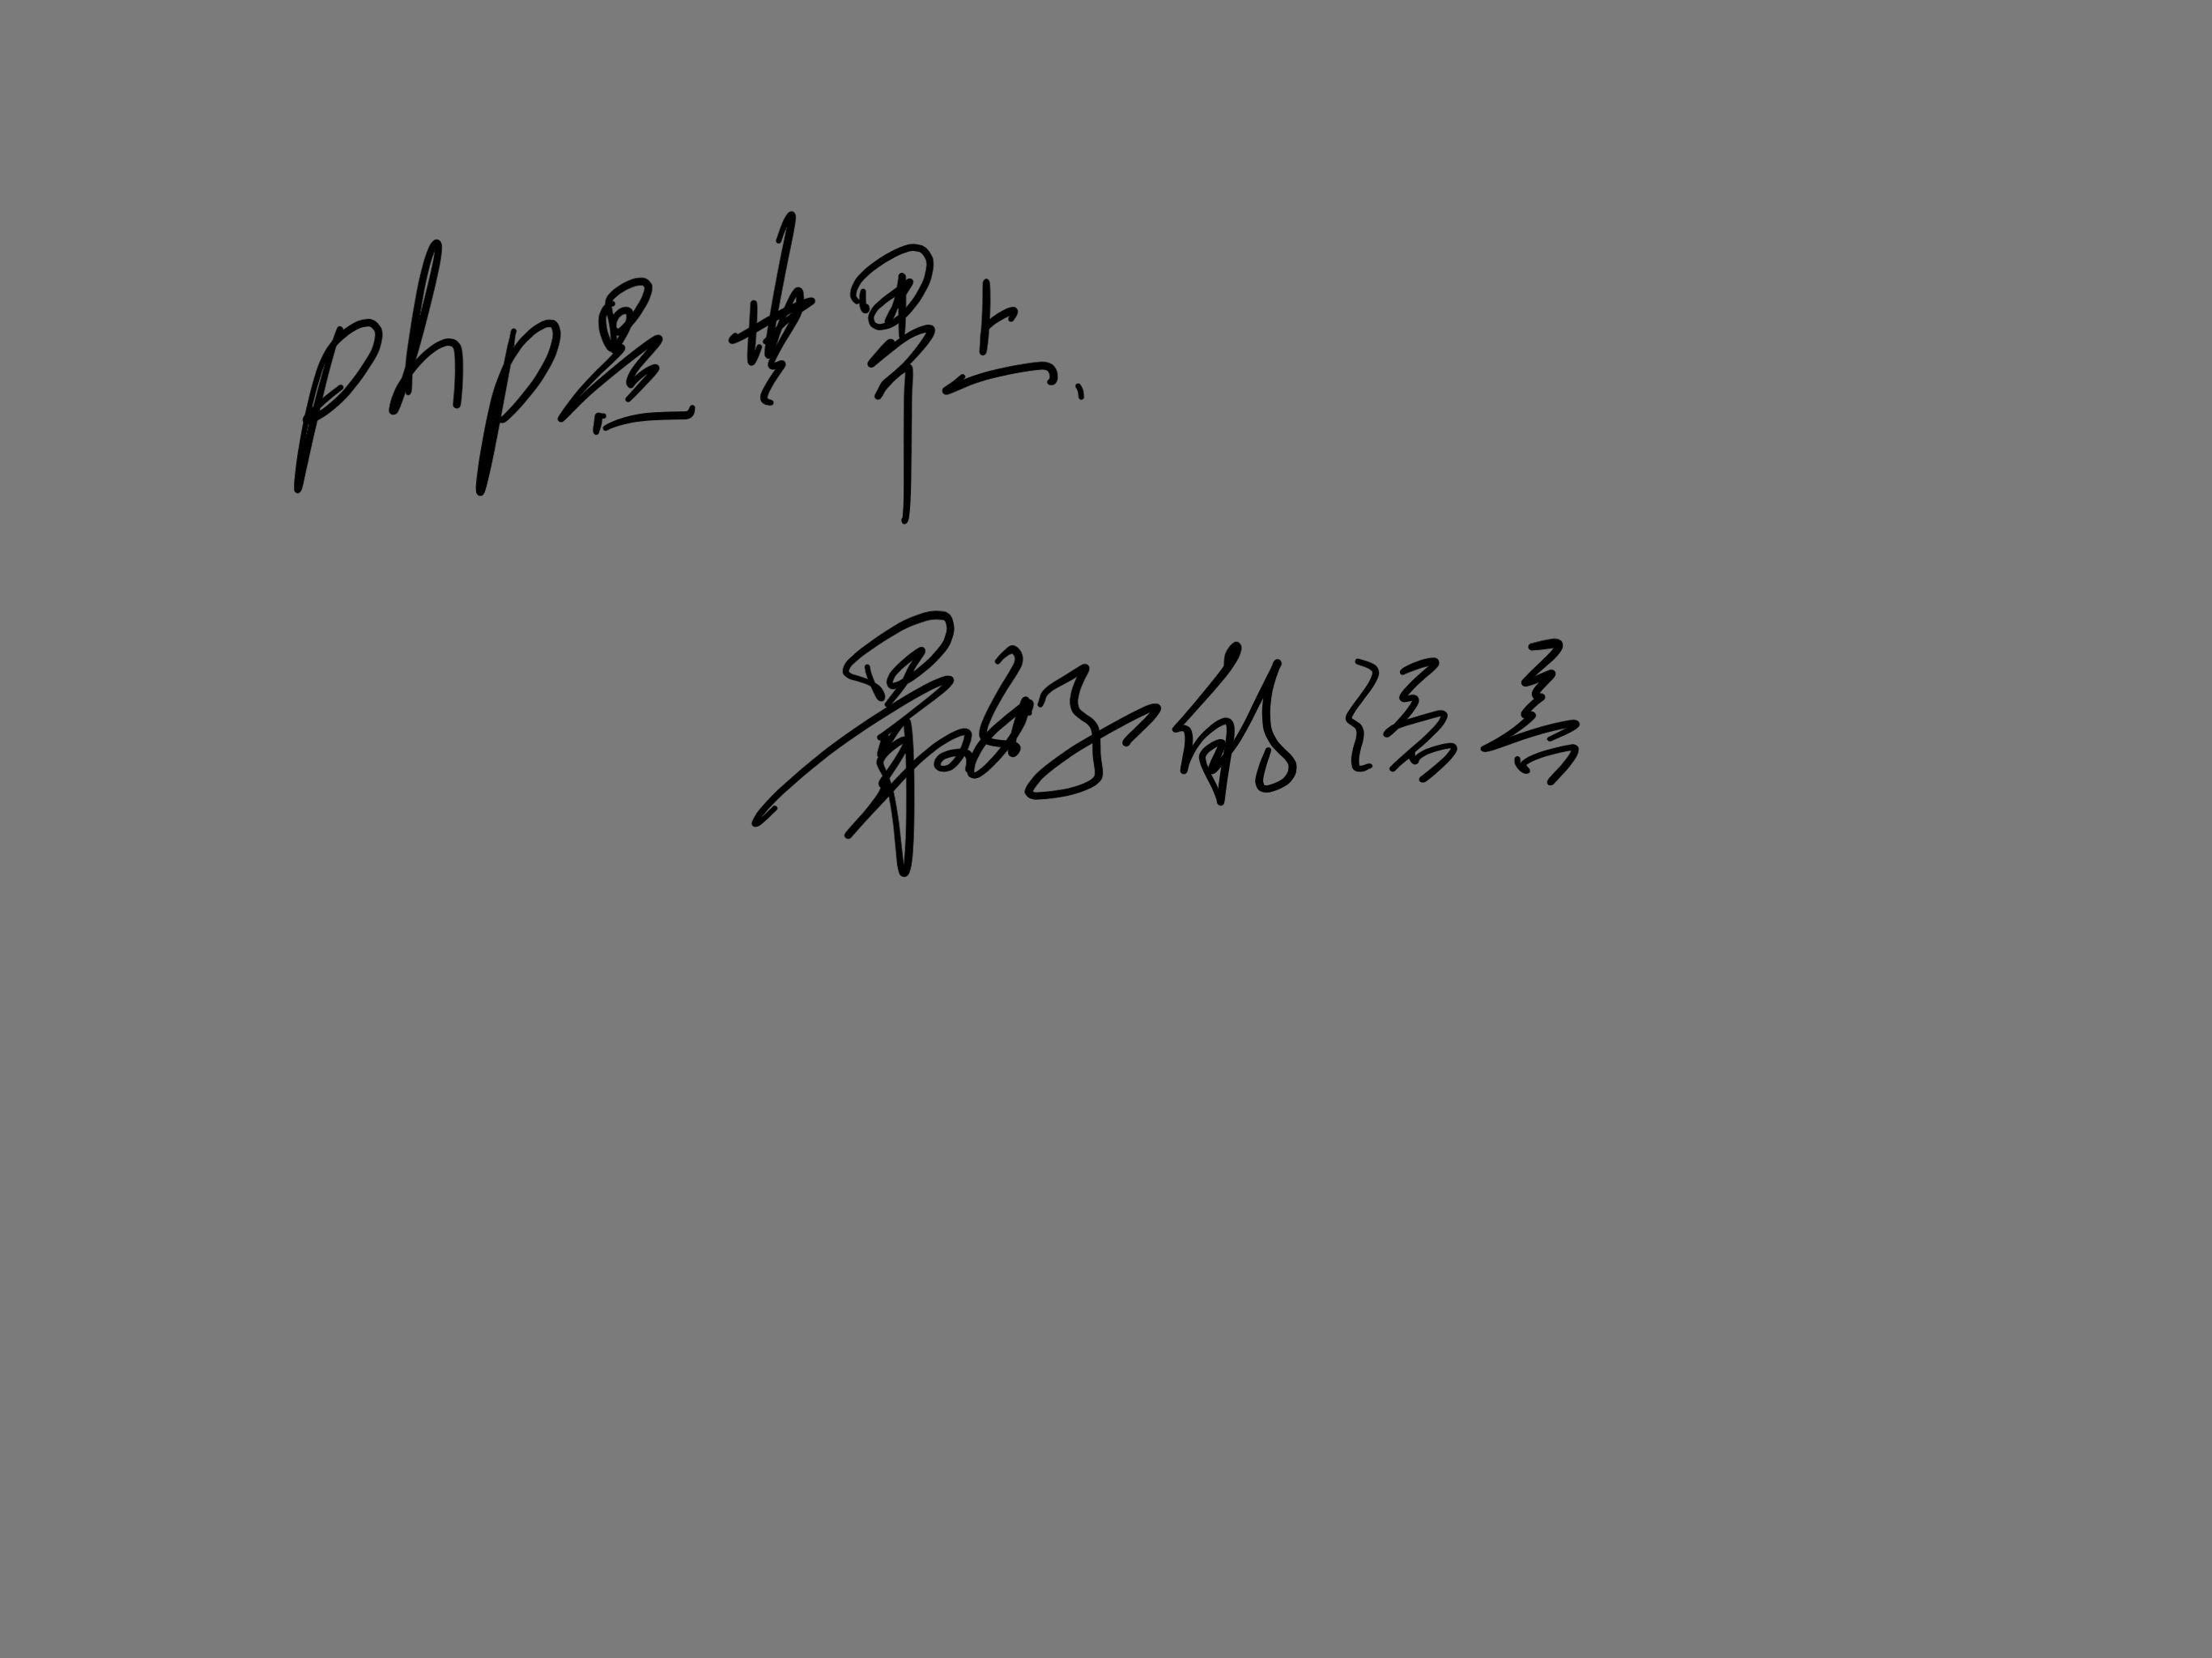 php是世界上
最好的语言